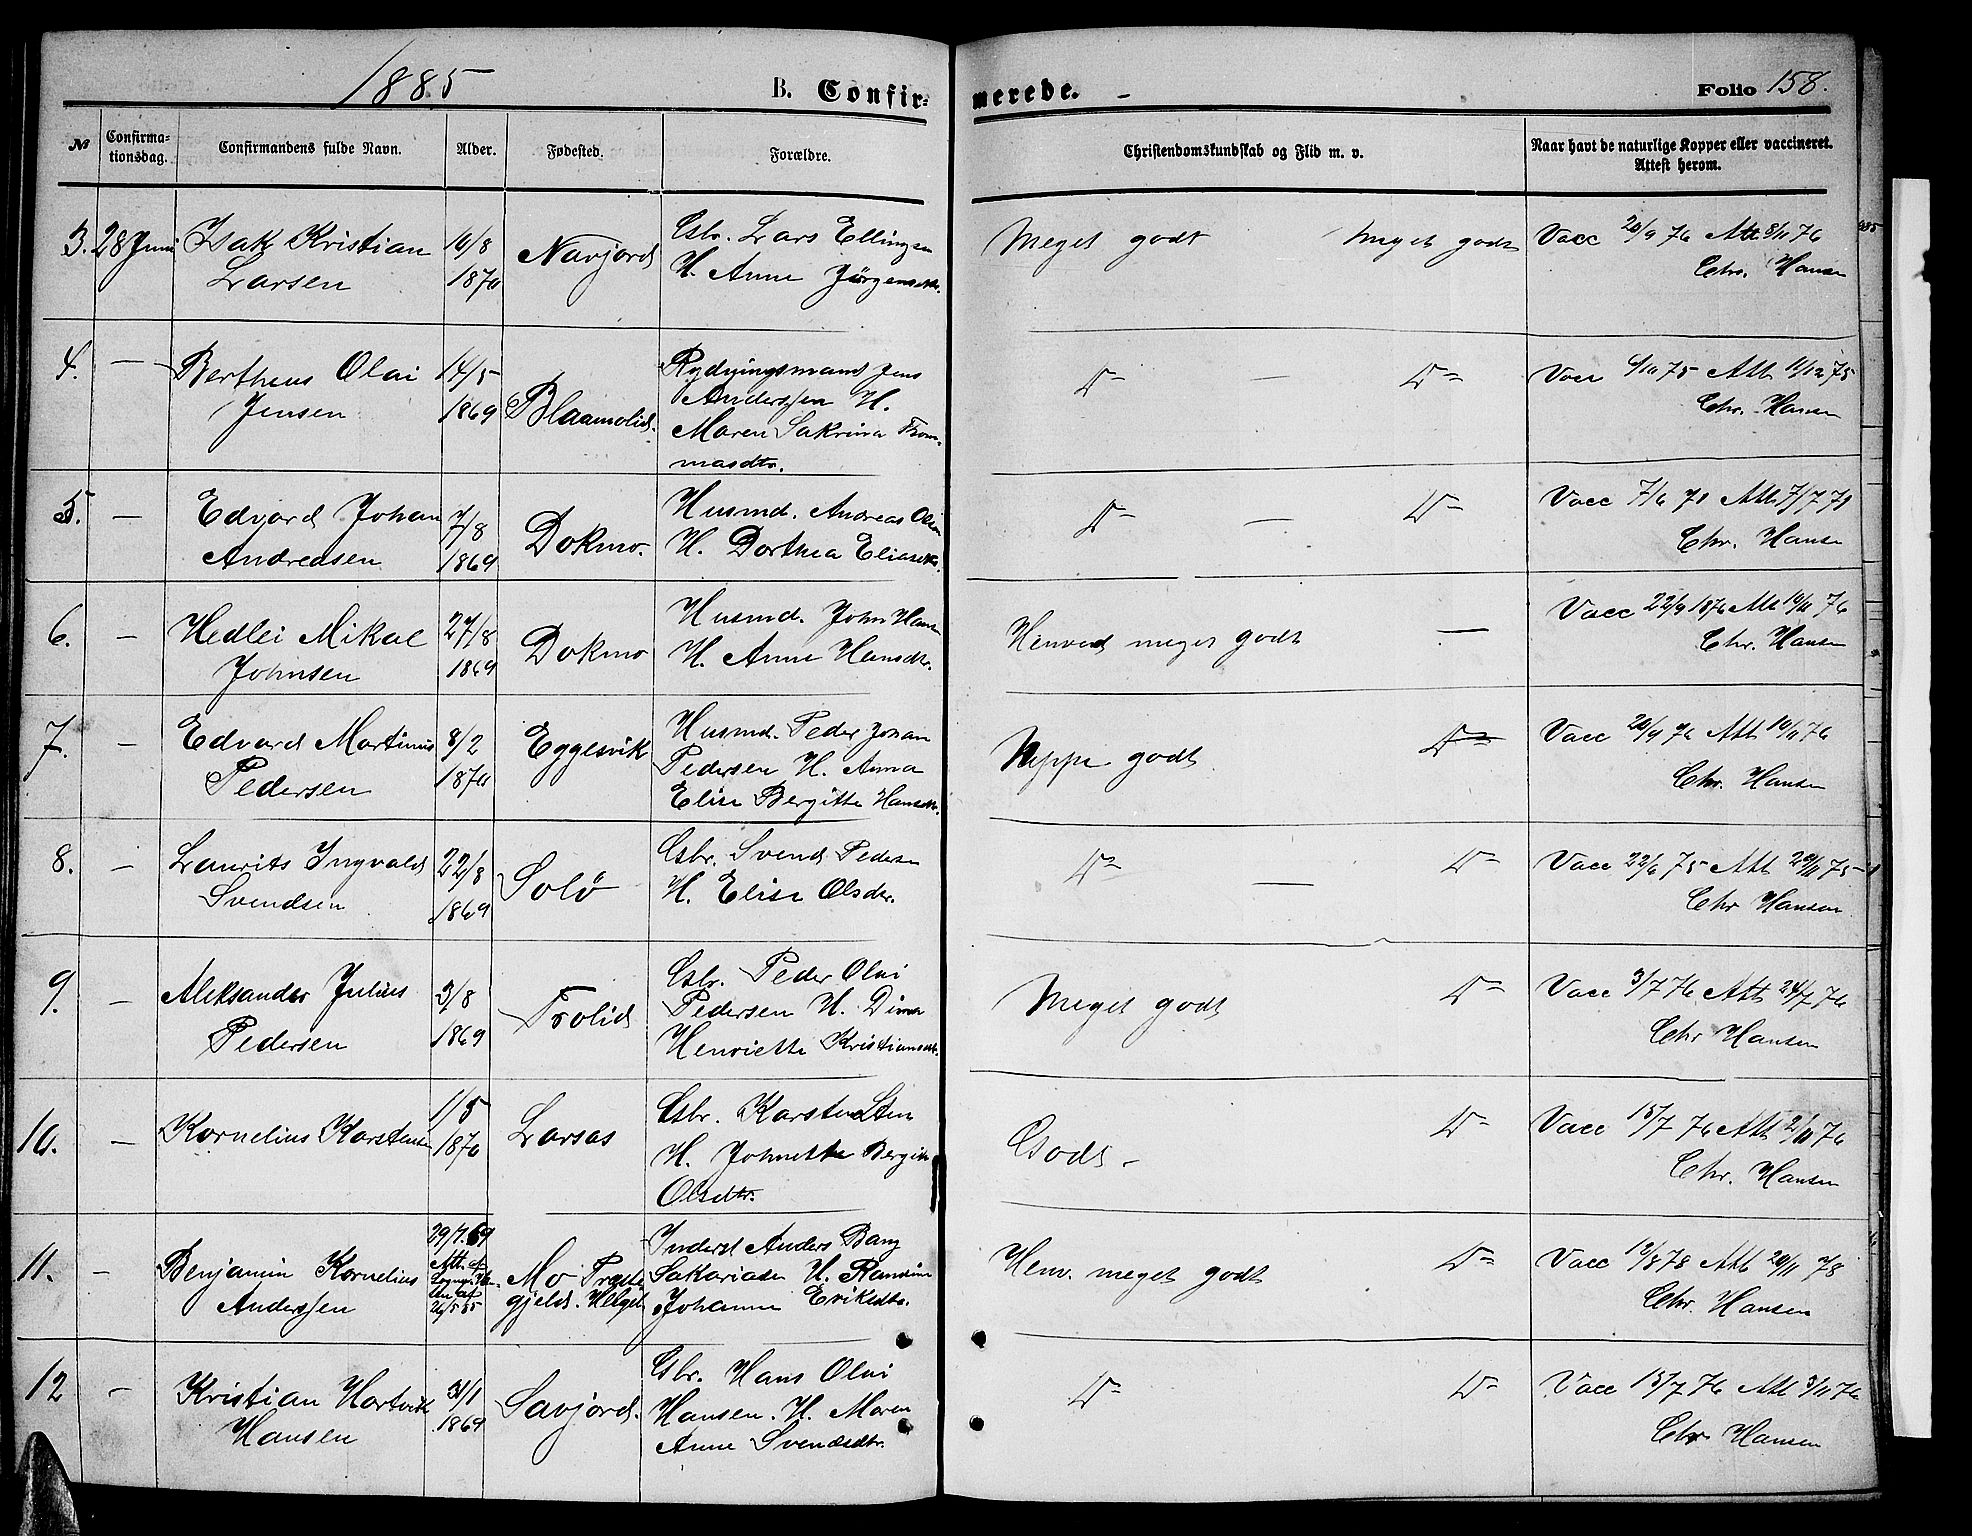 1885 B. Confirmerede. Folio 158.
№ Confirmationsdag. Confirmandens fulde Navn. Alder. Fødested. Forældre. Christendomskundskab og Flid m. v. Naar havt de naturlige Kopper eller vaccineret. Attest herom.
3. 28 Juni Isak Kristian 10/8 Navjord Gbr. Lars Ellingsen Meget godt Meget godt Vacc 20/9 76 Att 8/11 76
Larsen 1870 H. Anne Jörgensdtr. Chr. Hansen
4. — Bertheus Olai 14/5 Blaamolid. Rydningsmand Jens D — D Vacc 6/10 75 Att 11/12 75
Jensen 1869 Anderssen H. Chr. Hansen
Maren Sakrina Thom-
masdtr.
5. — Edvard Johan 7/8 Dokmo. Husmd. Andreas Olsen D — D Vacc 7/6 71 Att 7/7 71
Andreasen 1869 H. Dorthea Eliasdtr. Chr. Hansen
6. — Hedlei Mikal 27/8 Dokmo Husmd. John Hansen Henved meget godt — Vacc 22/9 1876 Att 10/11 76
Johnsen 1869 H. Anne Hansdtr. Chr. Hansen
7. — Edvard Martinus 8/2 Eggesvik Husmd. Peder Johan Neppe godt D Vacc 20/9 76 Att 10/11 76
Pedersen 1870 Pedersen H. Anna Chr. Hansen
Elise Bergitte Hansdtr.
8. — Laurits Ingvald 22/8 Solö Gbr. Svend Pedersen D — D Vacc 22/6 75 Att 29/11 75
Svendsen 1869 H. Elise Olsdtr. Chr Hansen
9. — Aleksander Julius 3/8 Trolid Gbr. Peder Olai Meget godt D Vacc 3/7 76 Att 24/7 76
Pedersen 1869 Pedersen H. Dina Chr Hansen
Henriette Kristiansdtr.
10. — Kornelius Karstensen 1/5 Larsos Gbr. Karsten Godt D Vacc 15/7 76 Att 2/11 76
1870 H. Johnette Bergitte Chr. Hansen
Olsdtr.
11. — Benjamin Kornelius 29/7.69 Mo Præste- Inderst Anders Bang Henv. meget godt D Vacc 12/8 78 Att 20/11 78
Anderssen Att. af gjeld. Helgel. Sakariasen H. Chr. Hansen
26/5 85 Johanne Eriksdtr.
12 — Kristian Hartvik 31/1 Savjord. Gbr. Hans Olai D D Vacc 15/7 76 Att 3/11 76
Hansen 1869 Hansen. H. Maren Chr Hansen
Anne Svendsdtr.